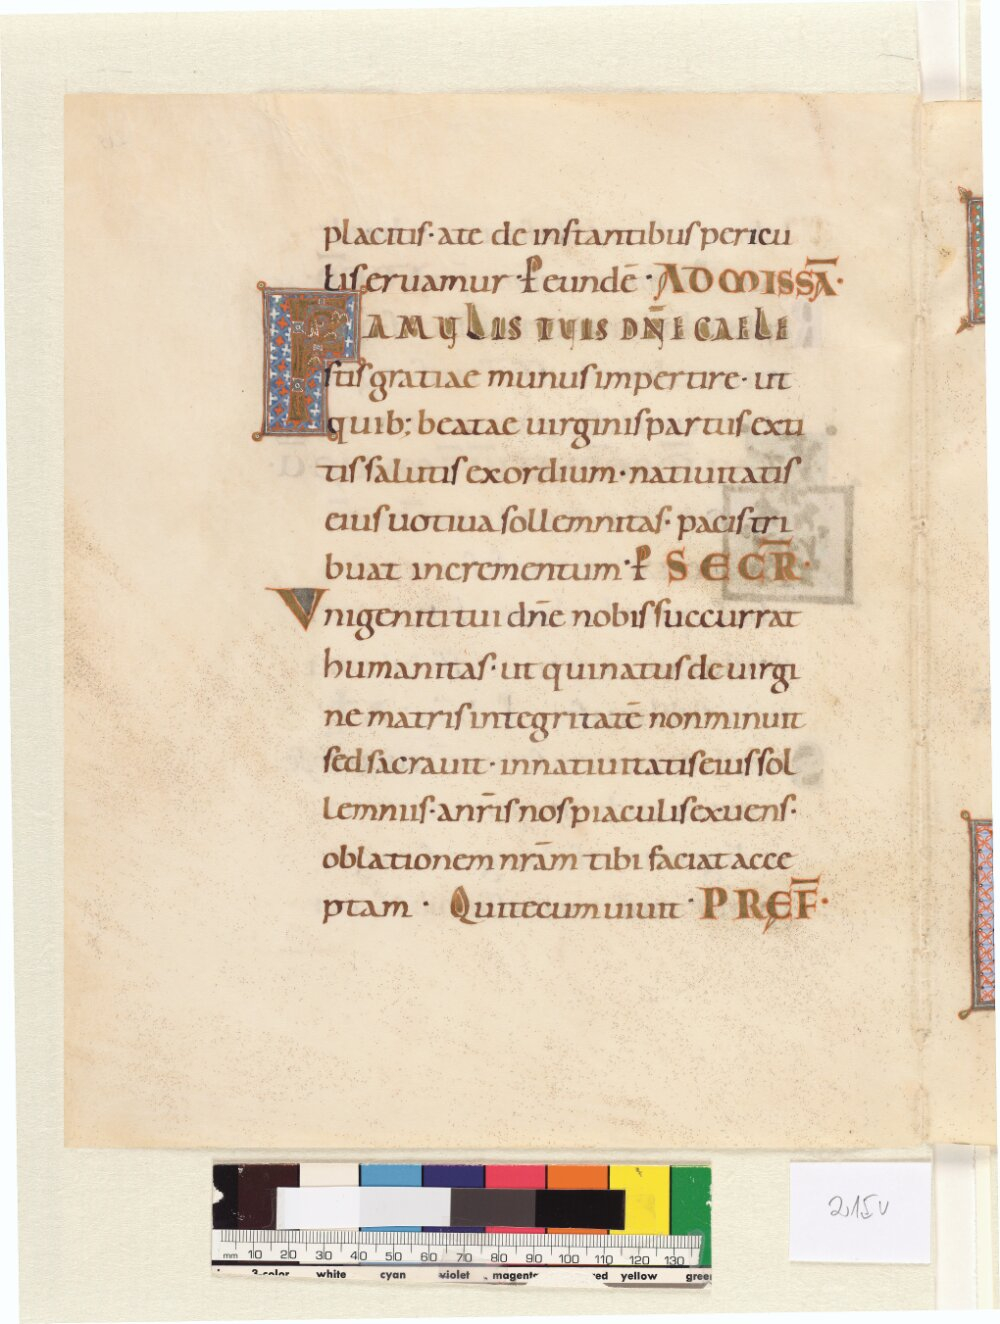 placitis· a te de instantibus pericu
lis eruamur· ꝑ eundē· AD MISSĀ·
FAMULIS TUIS DN̄E CAELE
stis gratiae munus impertire· ut
quib; beatae uirginis partus exti
tis salutis exordium· natiuitatis
eius uotiua sollemnitas· pacis tri
buat incrementum· ꝑ SECR̄·
Vnigeniti tui dn̄e nobis succurrat
humanitas· ut qui natus de uirgi
ne matris integritatē non minuit
sed sacrauit· in natiuitatis eius sol
lemniis· a nr̄is nos piaculis exuens·
oblationem nrām tibi faciat acce
ptam· Qui tecum uiuit· PREF̄·
215v
mm 10 20 30 40 50 60 70 80 90 100 110 120 130
3-color white cyan violet magenta red yellow green